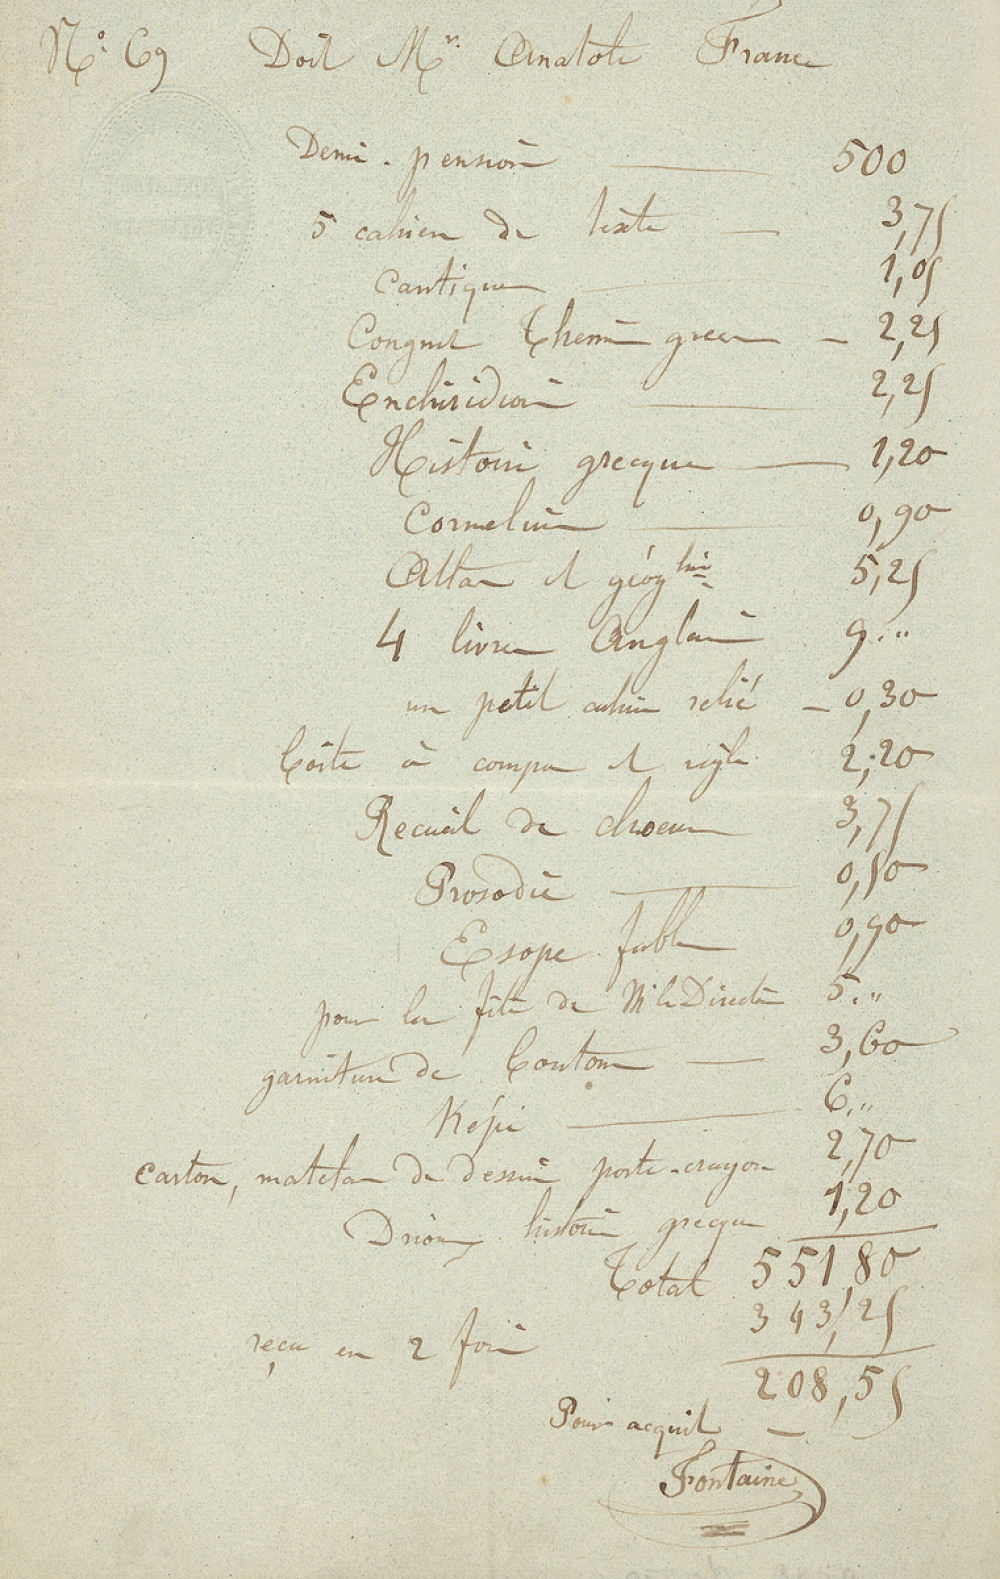 N° 69 Doit Mr. Anatole France
Demi-pension — 500
5 cahiers de texte — 3,75
Cantiques — 1,05
Congnet Thèmes grecs — 2,25
Enchiridion — 2,25
Histoire grecque — 1,20
Cornelius — 0,90
Atlas et géogphie 5,25
4 livres Anglais 9."
un petit cahier relié — 0,30
boîte à compas et règle 2,20
Recueil de choeurs 3,75
Prosodie — 0,50
Esope fables 0,90
pour la fête de M le Directeur 5."
garniture de boutons — 3,60
Képi — 6."
carton, matelas de dessin porte-crayon 2,70
Drioux histoire grecque 1,20
Total 551,80
reçu en 2 fois 343,25
208,55
Pour acquit —
Fontaine